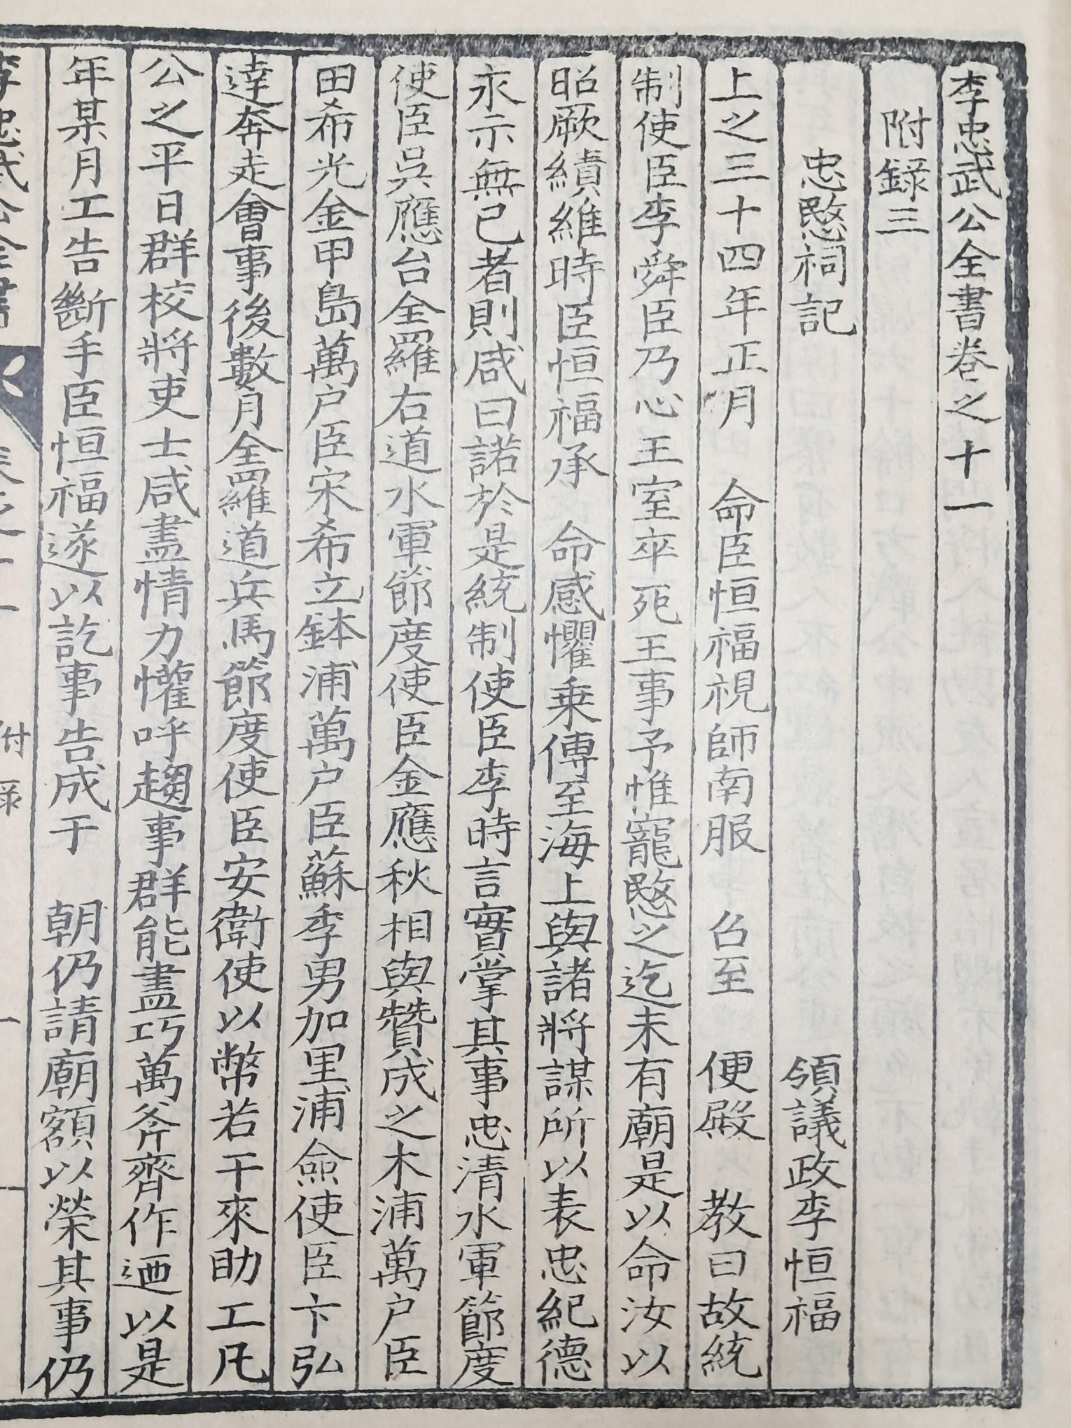 李忠武公全書卷之十一
附錄三
忠愍祠記　領議政李恒福
上之三十四年正月　命臣恒福視師南服　召至　便殿　教曰故統
制使臣李舜臣乃心王室卒死王事予惟寵愍之迄未有廟是以命汝以
昭厥績維時臣恒福承　命感懼乗傳至海上與諸將謀所以表忠紀德
永示無已者則咸曰諾於是統制使臣李時言實掌其事忠清水軍節度
使臣吳應台全羅右道水軍節度使臣金應秋相與贊成之木浦萬户臣
田希光金甲島萬户臣宋希立鉢浦萬户臣蘇季男加里浦僉使臣卞弘
達奔走會事後數月全羅道兵馬節度使臣安衛使以幣若干來助工凡
公之平日群校將吏士咸盡情力懽呼趨事群能盡巧萬斧齊作迺以是
年某月工告斷手臣恒福遂以訖事告成于　朝仍請廟額以榮其事仍
李忠武公全書　卷之十一　附錄　一